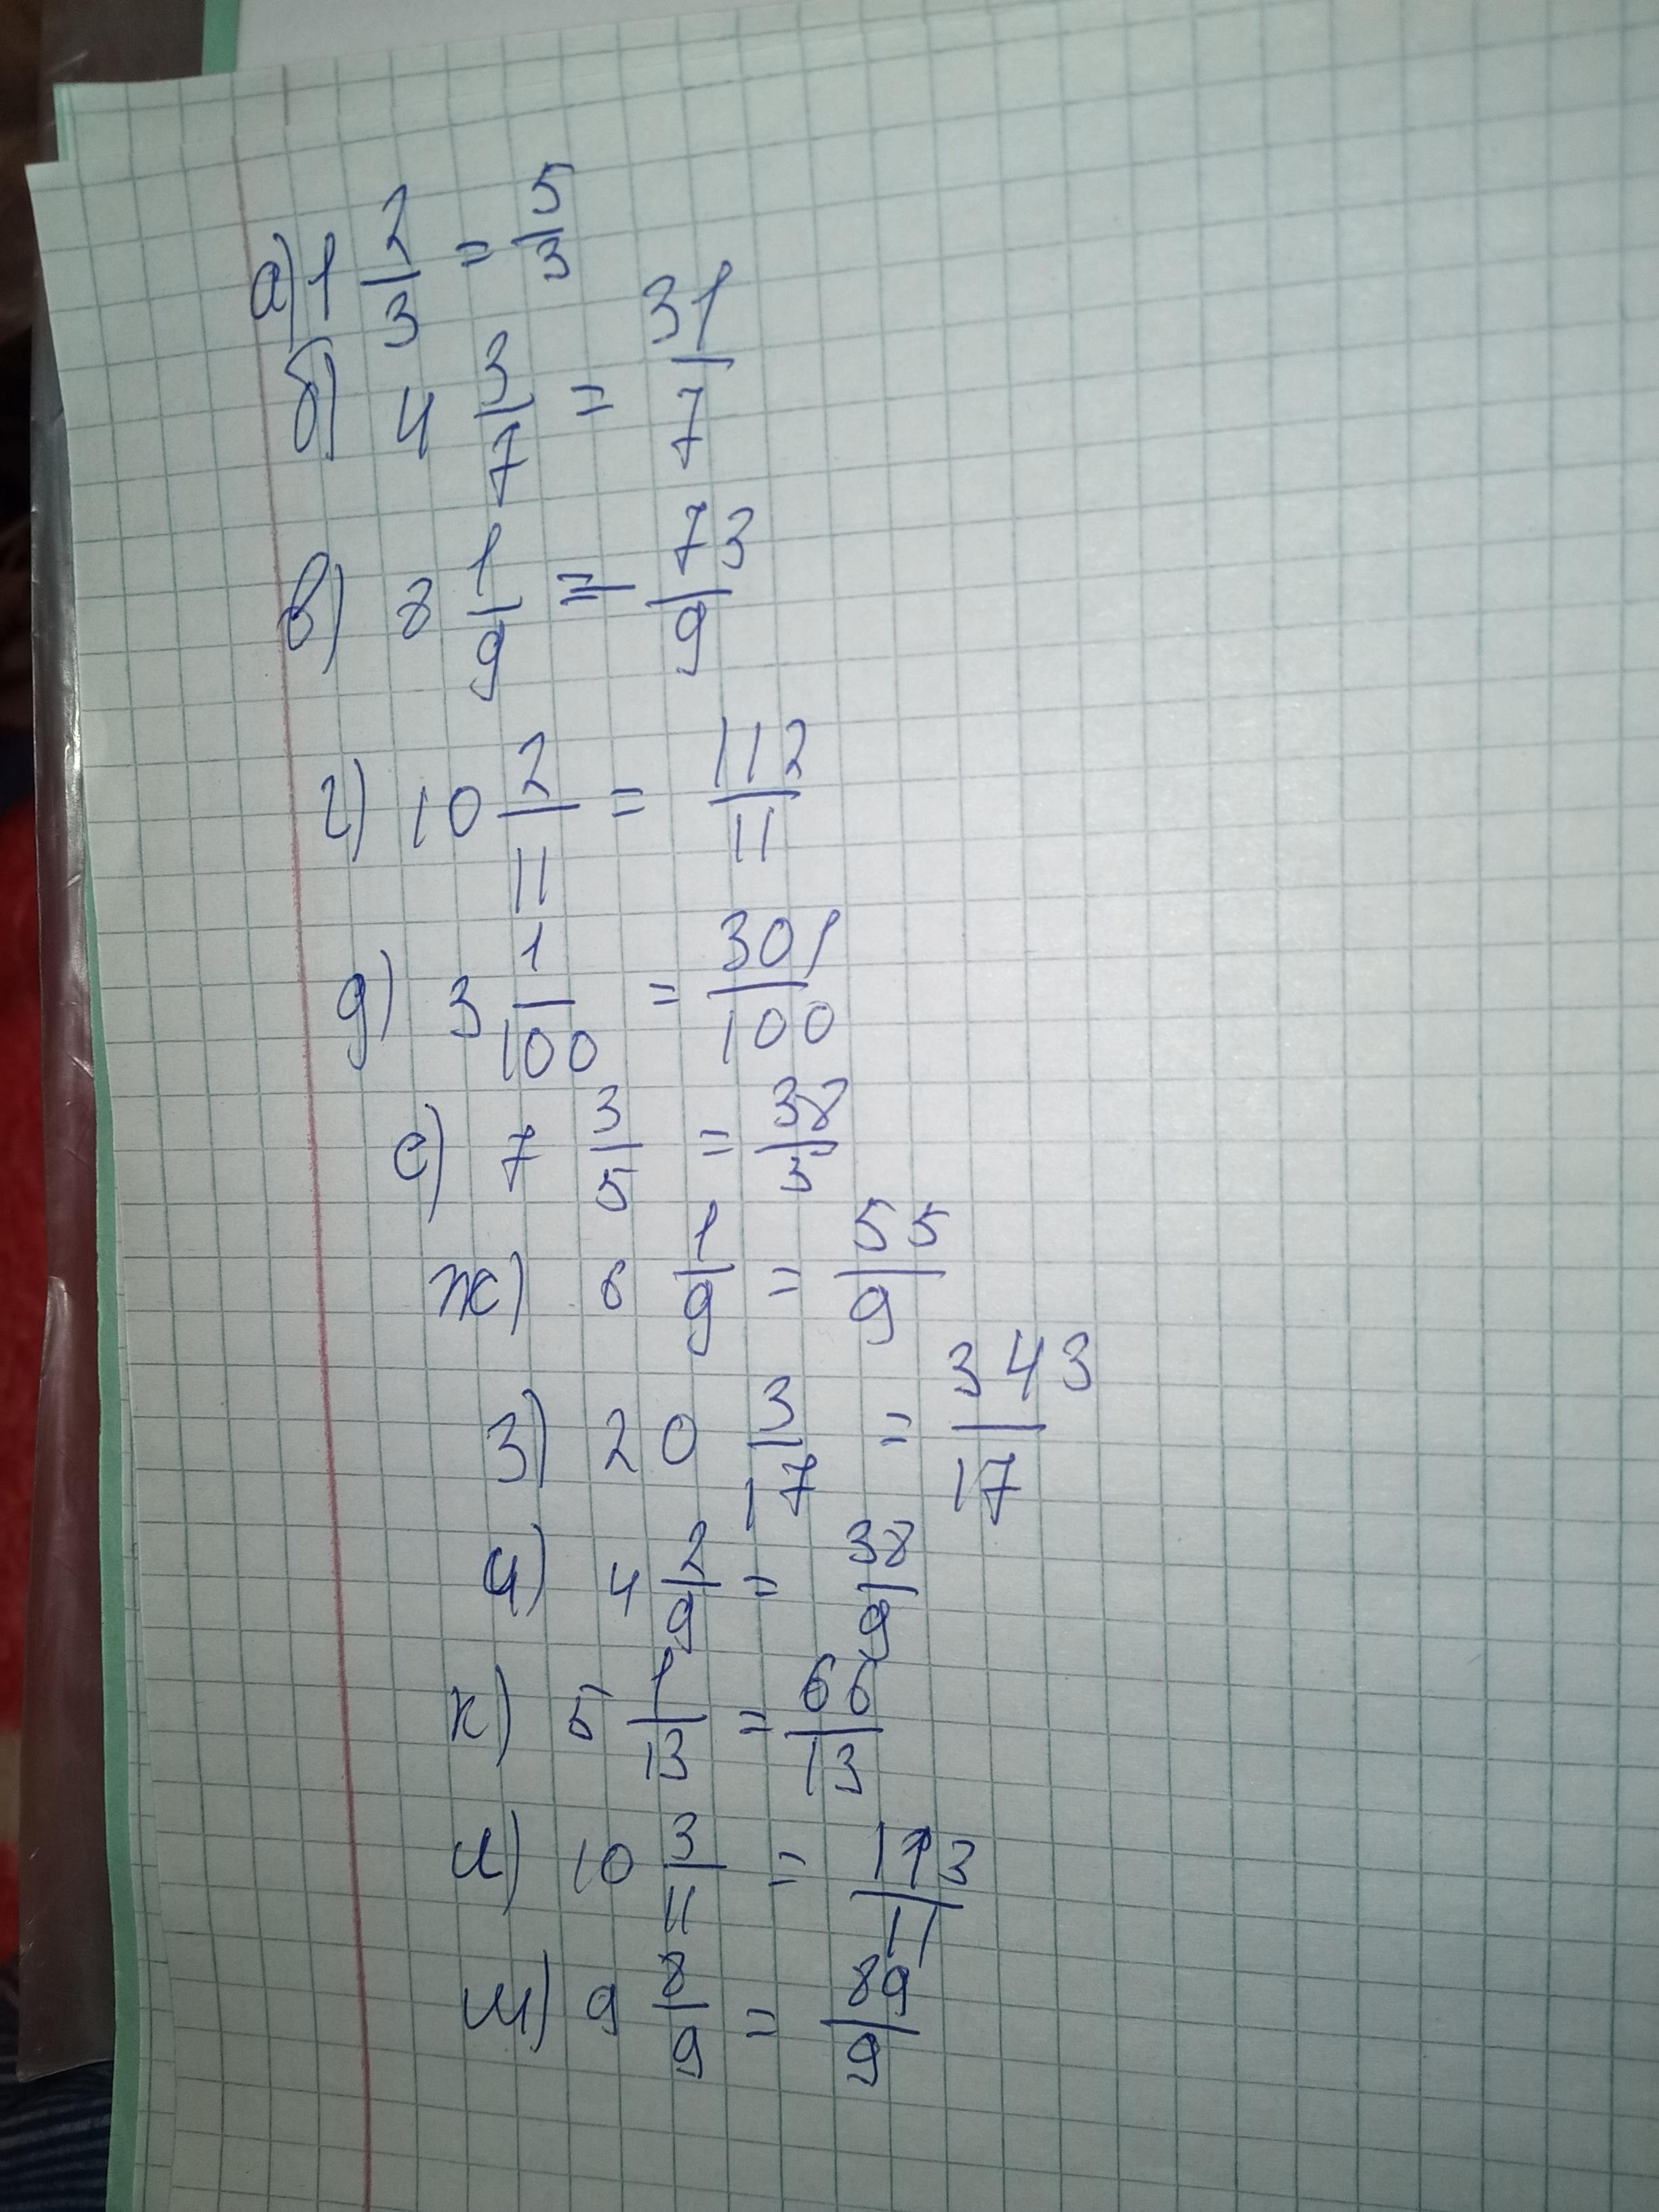 а) 1 2/3 = 5/3
б) 4 3/7 = 31/7
в) 8 1/9 = 73/9
г) 10 2/11 = 112/11
д) 3 1/100 = 301/100
е) 7 3/5 = 38/5
ж) 6 1/9 = 55/9
з) 20 3/17 = 343/17
и) 4 2/9 = 38/9
к) 5 1/13 = 66/13
л) 10 3/11 = 113/11
м) 9 8/9 = 89/9